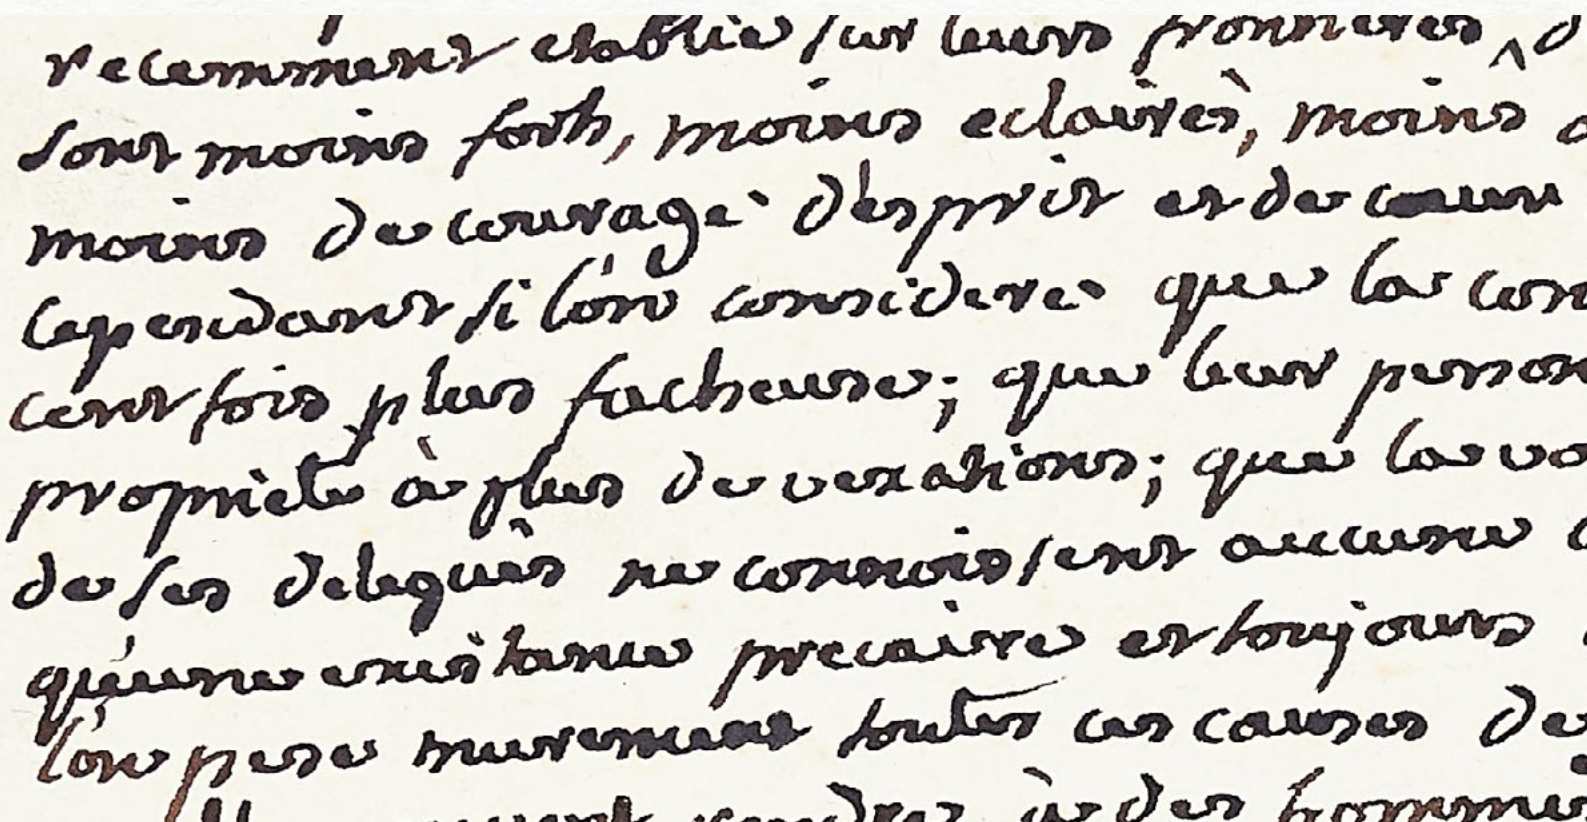 recemment etablie sur leurs fronnieres
sont moins forts, moins eclairès, moins
moins de courage d'esprit et de cœur
cependant si l'on considere que la con
cent fois plus facheuse; que leur person
proprietè à plus de vexations; que la vo
de ses deleguès ne connoissent aucune
qu'une existance precaire et toujours
l'on pese murement toutes ces causes de
rendre à des homme